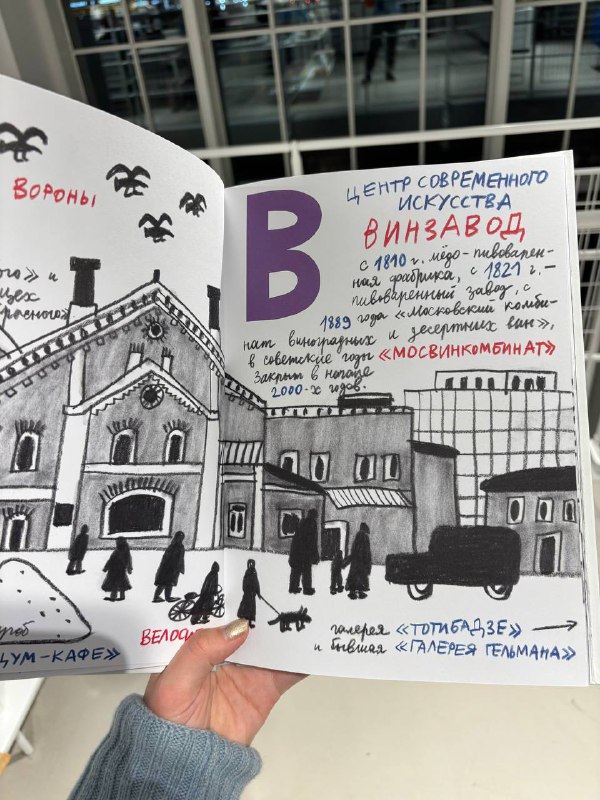 ВОРОНЫ
» и
цех
расного»
СУГРОБ
ЦУМ-КАФЕ»
ВЕЛОС
В
ЦЕНТР СОВРЕМЕННОГО
ИСКУССТВА
ВИНЗАВОД
с 1810 г. мёдо-пивоварен-
ная фабрика, с 1821 г. –
пивоваренный завод, с
1889 года «Московский комби-
нат виноградных и десертных вин»,
в советские годы «МОСВИНКОМБИНАТ»
Закрыт в начале
2000-х годов.
галерея «ТОТИБАДЗЕ» →
и бывшая «ГАЛЕРЕЯ ГЕЛЬМАНА»